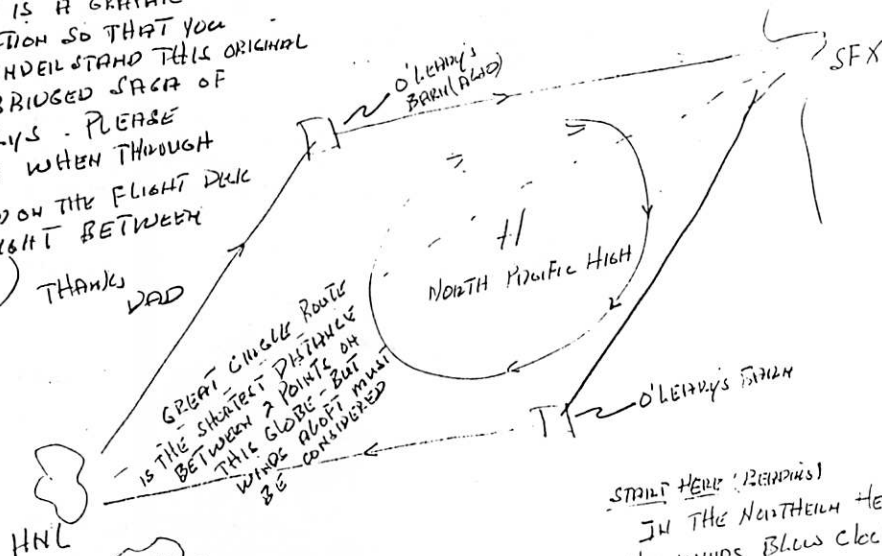 IS A GRAPHIC
SO THAT YOU
UNDERSTAND THIS ORIGINAL
SAGA OF
PLEASE
WHEN THROUGH
ON THE FLIGHT DECK
BETWEEN
THANKS
DAD
O'LEARY'S
BARN (ALSO)
SFX
H
NORTH PACIFIC HIGH
GREAT CIRCLE ROUTE
IS THE SHORTEST DISTANCE
BETWEEN 2 POINTS ON
THIS GLOBE - BUT
WINDS ALOFT MUST
BE CONSIDERED
O'LEARY'S BARN
HNL
START HERE (READING)
IN THE NORTHERN HE
WINDS BLOW CLOC